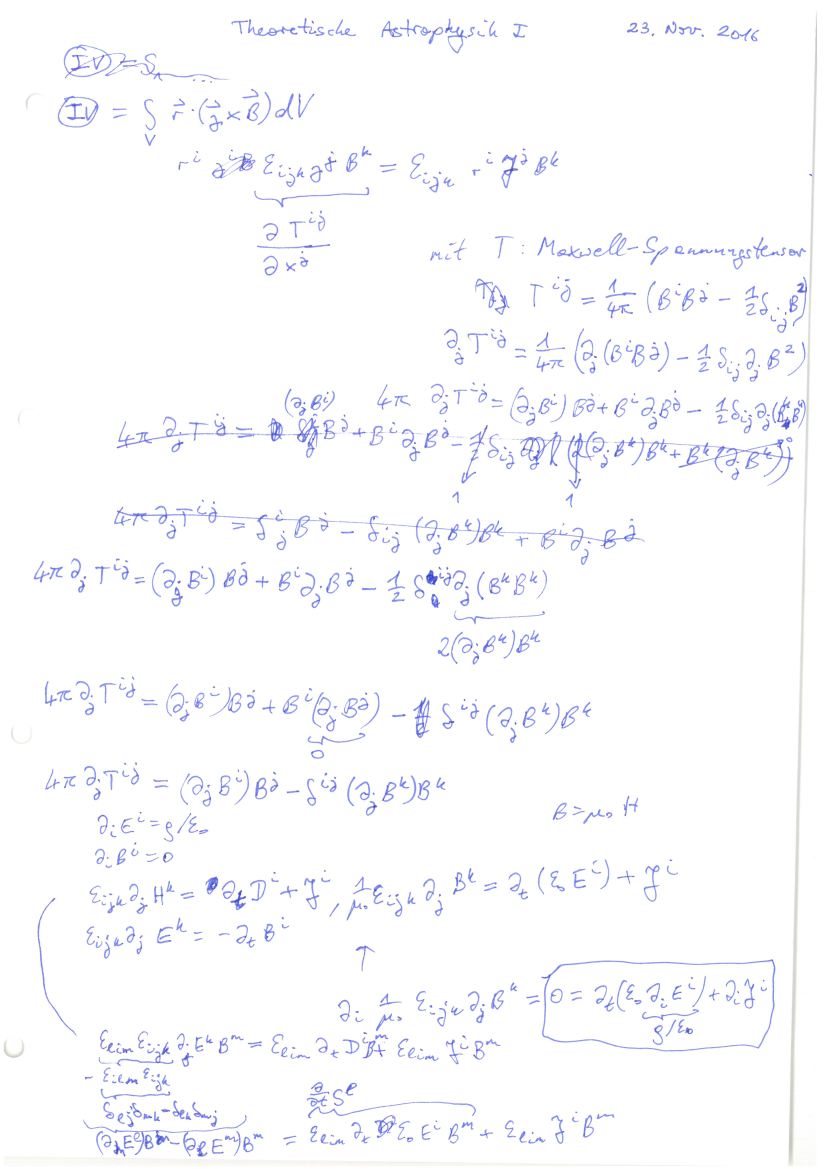 Theoretische Astrophysik I 23. Nov. 2016
(IV) = ∫ ...
(IV) = ∫_V r⃗·(j⃗×B⃗) dV
r^i ε_{ijk} j^j B^k = ε_{ijk} r^i j^j B^k
∂T^{ij}/∂x^j
mit T: Maxwell-Spannungstensor
T^{ij} = 1/4π (B^i B^j - 1/2 δ_{ij} B^2)
∂_j T^{ij} = 1/4π (∂_j(B^i B^j) - 1/2 δ_{ij} ∂_j B^2)
4π ∂_j T^{ij} = (∂_j B^i) B^j + B^i ∂_j B^j - 1/2 δ_{ij} ∂_j (B^k B^k)
(∂_j B^i)
4π ∂_j T^{ij} = B^j + B^i ∂_j B^j - 1/2 δ_{ij} ((∂_j B^k) B^k + B^k (∂_j B^k))
1 1
4π ∂_j T^{ij} = δ^i_j B^j - δ_{ij} (∂_j B^k) B^k + B^i ∂_j B^j
4π ∂_j T^{ij} = (∂_j B^i) B^j + B^i ∂_j B^j - 1/2 δ^{ij} ∂_j (B^k B^k)
2(∂_j B^k) B^k
4π ∂_j T^{ij} = (∂_j B^i) B^j + B^i (∂_j B^j) - δ^{ij} (∂_j B^k) B^k
0
4π ∂_j T^{ij} = (∂_j B^i) B^j - δ^{ij} (∂_j B^k) B^k
∂_i E^i = ρ/ε_0
B = μ_0 H
∂_i B^i = 0
ε_{ijk} ∂_j H^k = ∂_t D^i + j^i, 1/μ_0 ε_{ijk} ∂_j B^k = ∂_t (ε_0 E^i) + j^i
ε_{ijk} ∂_j E^k = -∂_t B^i
↑
∂_i 1/μ_0 ε_{ijk} ∂_j B^k = 0 = ∂_t (ε_0 ∂_i E^i) + ∂_i j^i
ρ/ε_0
ε_{lim} ε_{ijk} ∂_j E^k B^m = ε_{lim} ∂_t D^i B^m + ε_{lim} j^i B^m
- ε_{ilm} ε_{ijk}
δ_{lj} δ_{mk} - δ_{lk} δ_{mj}
∂/∂t S^l
(∂_m E^l) B^m - (∂_l E^m) B^m = ε_{lim} ∂_t ε_0 E^i B^m + ε_{lim} j^i B^m